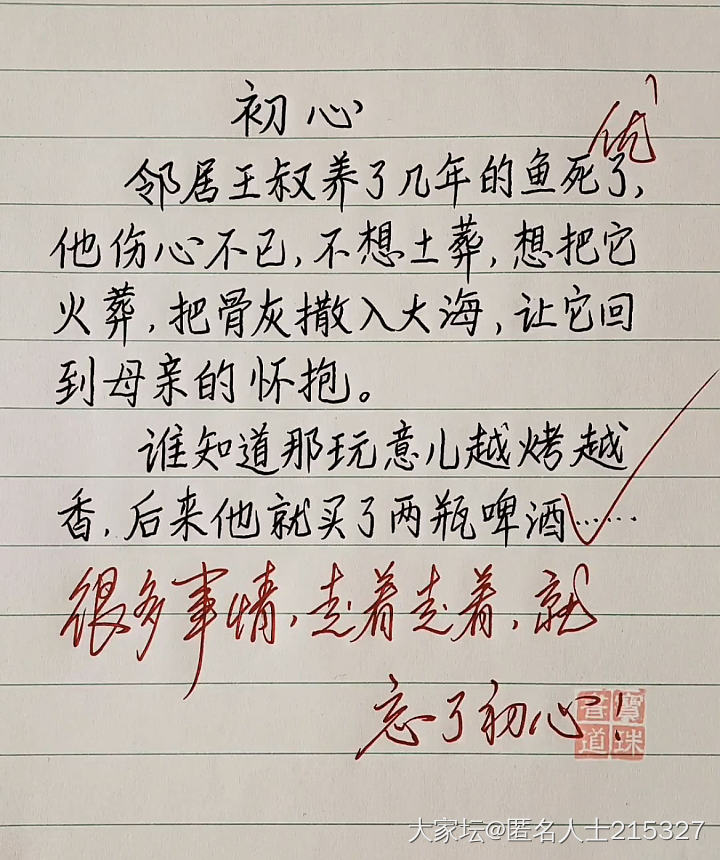 初心
优
邻居王叔养了几年的鱼死了,
他伤心不已,不想土葬,想把它
火葬,把骨灰撒入大海,让它回
到母亲的怀抱。
谁知道那玩意儿越烤越
香,后来他就买了两瓶啤酒……
很多事情,走着走着,就
忘了初心!
大家坛@匿名人士215327